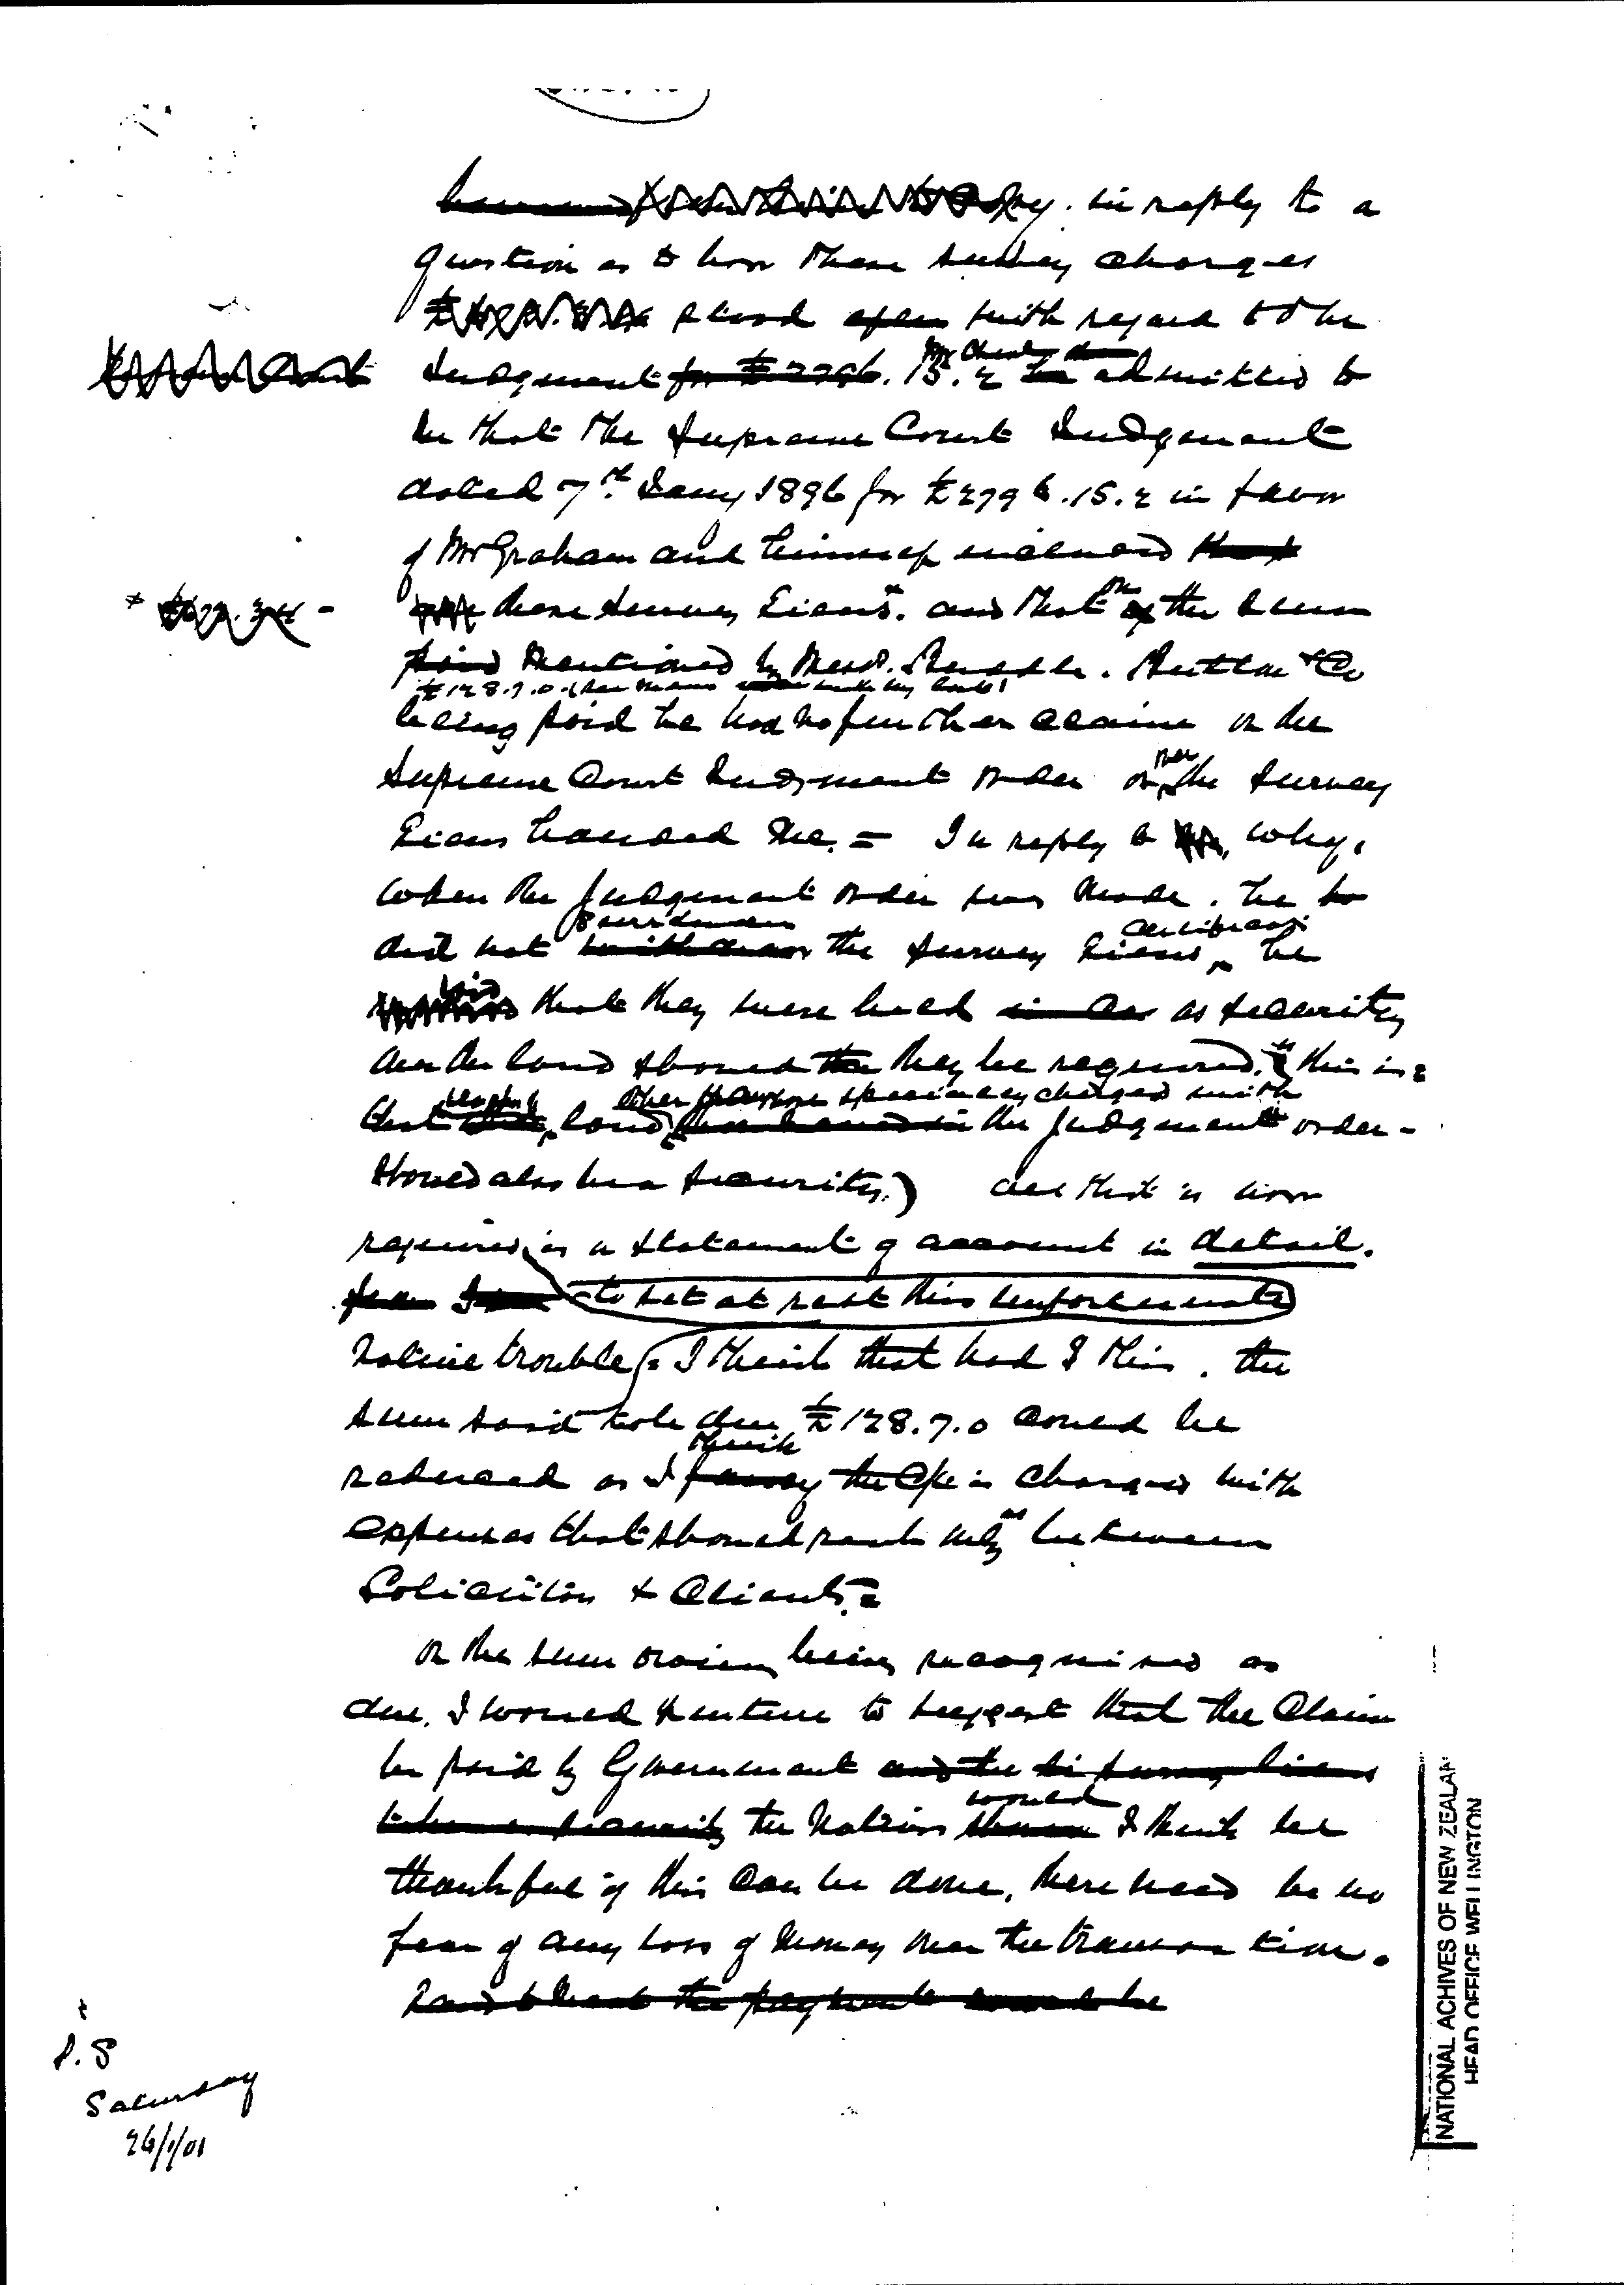 in reply to a
question as to how these survey charges
stood with regard to the
Judgment for £2796. 15. 2 he admitted to
me that the Supreme Court Judgment
dated 7th Jany 1896 for £2796.15.2 in favor
of Mr Graham and himself included that
these survey Liens. and that on the sum
paid mentioned by Messrs. & Co
£128.7.0
being paid he had no further claim on the
Supreme Court Judgment order or the survey
Liens handed me. = In reply to why,
when the Judgment order was made. he
did not withdraw the survey Liens, he
said that they were held as security
over the land should they be required. this is =
that land other than those specially charged with
in the Judgment order -
should also be a security.) all that is now
required is a statement of account in detail.
to set at rest this unfortunate
Native trouble = I think that had I this. the
sum said to be due £128.7.0 could be
think
reduced as I fancy the a/c is charged with
expenses that should rank only as between
Solicitor & Client. =
On the sum being recognised as
due. I would venture to suggest that the Claim
be paid by Government and the survey liens
would
taken as security the Natives I think be
thankful if this can be done, there need be no
fear of any loss of money over the transaction.
the payment
P.S
Saturday
26/1/01
NATIONAL ACHIVES OF NEW ZEALAN
HEAD OFFICE WELLINGTON